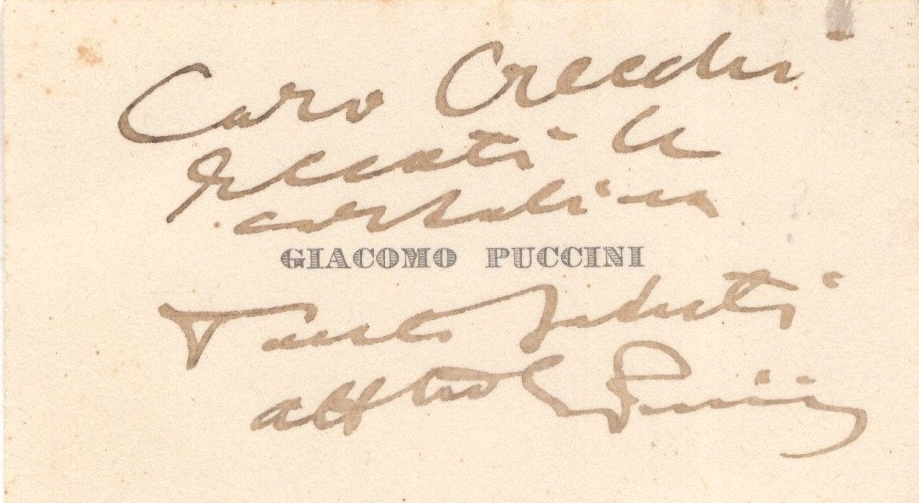 Caro Cecchi
Eccoti la
cartolina
GIACOMO PUCCINI
Tanti saluti
aff tuo GPuccini